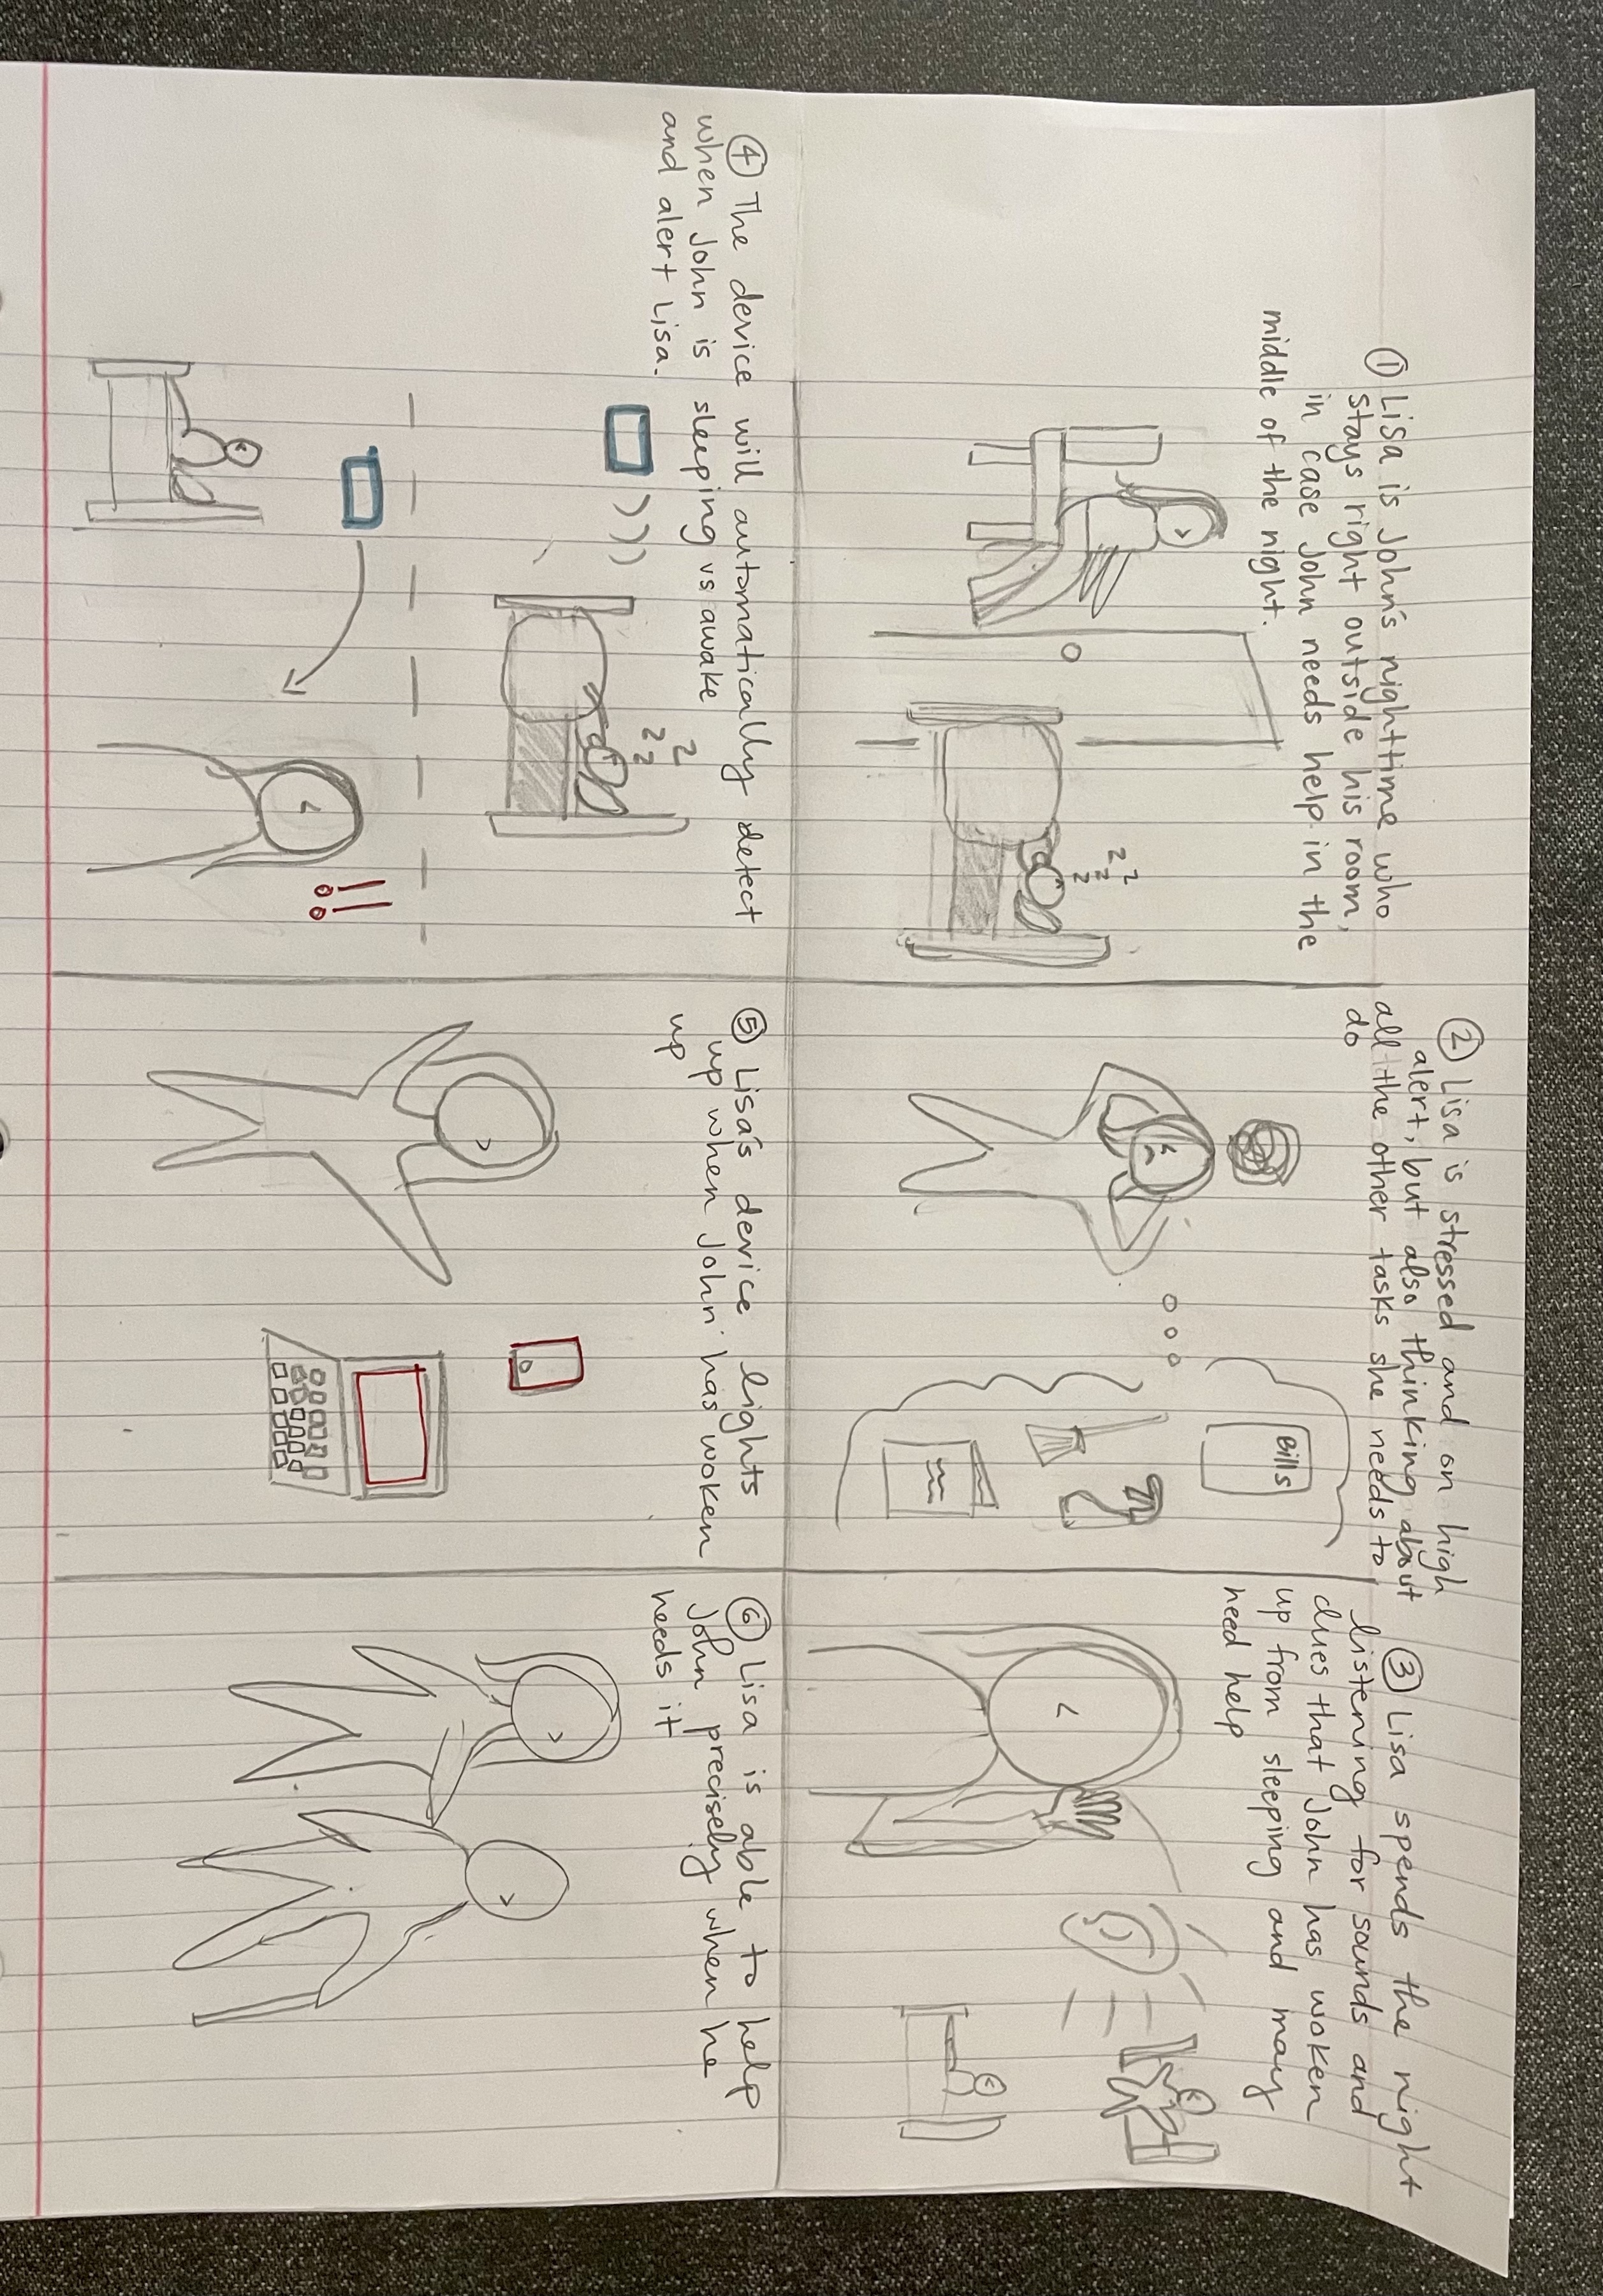 ① Lisa is John's nighttime who
stays right outside his room,
in case John needs help in the
middle of the night.
z z z z
② Lisa is stressed and on high
alert, but also thinking about
all the other tasks she needs to
do
Bills
③ Lisa spends the night
listening for sounds and
clues that John has woken
up from sleeping and may
need help
④ The device will automatically detect
when John is sleeping vs awake
and alert Lisa.
z z z
!!
⑤ Lisa's device lights
up when John has woken
up
⑥ Lisa is able to help
John precisely when he
needs it